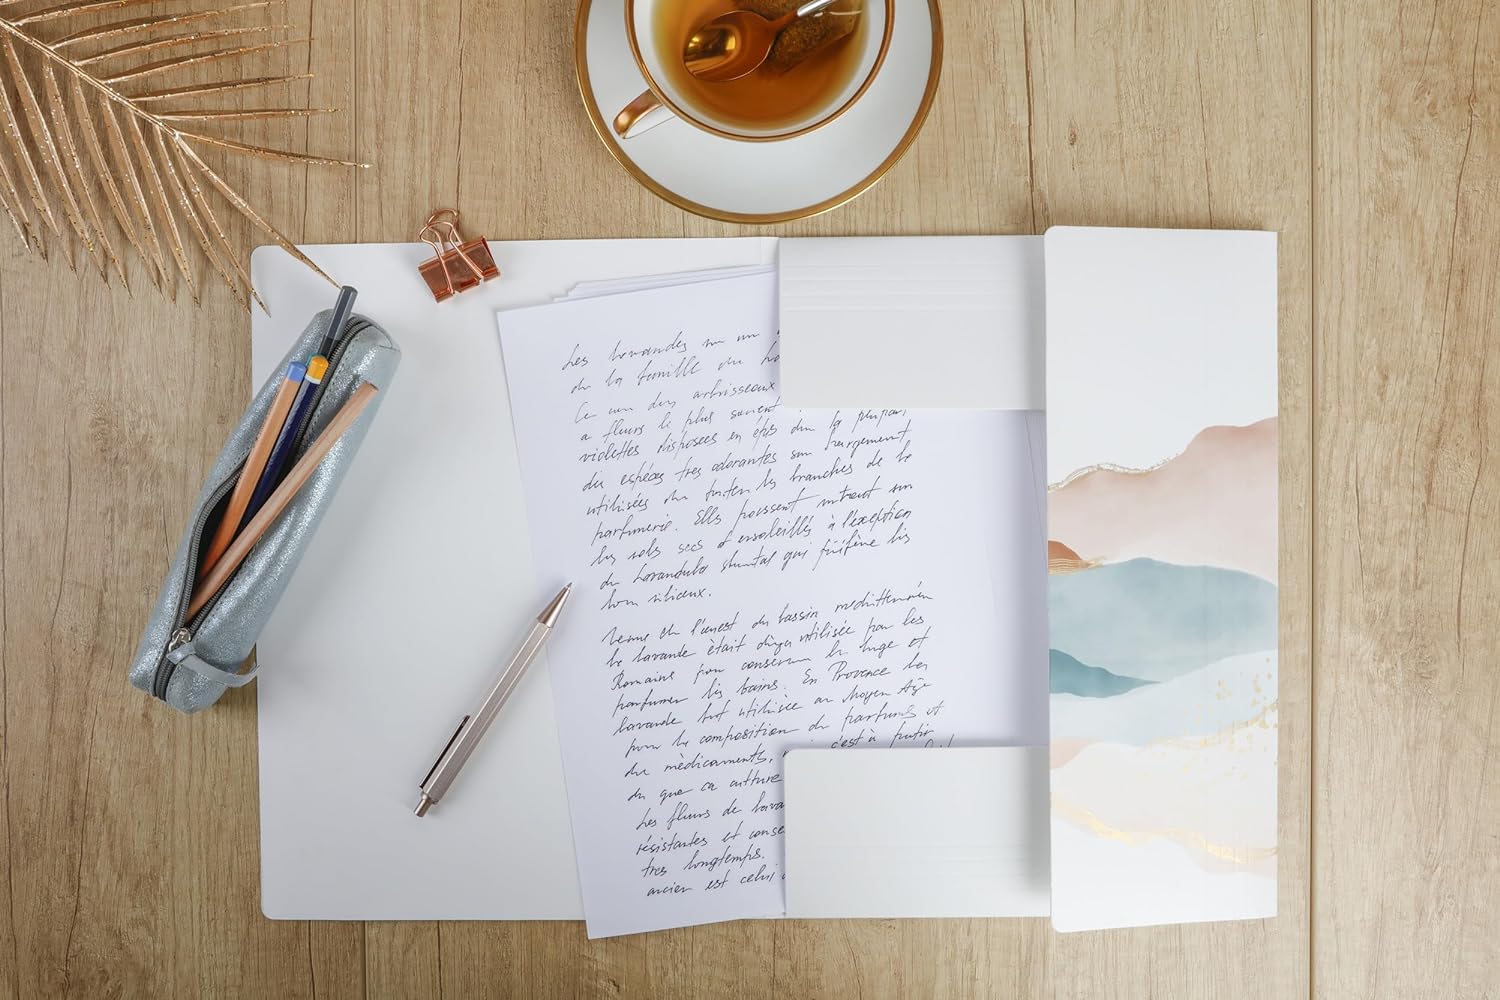 Les lavandes
de la famille du
Ce sont des arbrisseaux
à fleurs le plus souvent
violettes disposées en épis dont la plupart
des espèces très odorantes sont largement
utilisées dans toutes les branches de la
parfumerie. Elles poussent surtout sur
les sols secs et ensoleillés à l'exception
du Lavandula qui préfère les
sols siliceux.
l'ouest du bassin méditerranéen
la lavande était déjà utilisée par les
Romains pour conserver le linge et
parfumer les bains. En Provence la
lavande fut utilisée au Moyen Age
pour la composition de parfums et
de médicaments, c'est à partir
du que sa culture
Les fleurs de lava
résistantes et conse
très longtemps.
ancien est celui